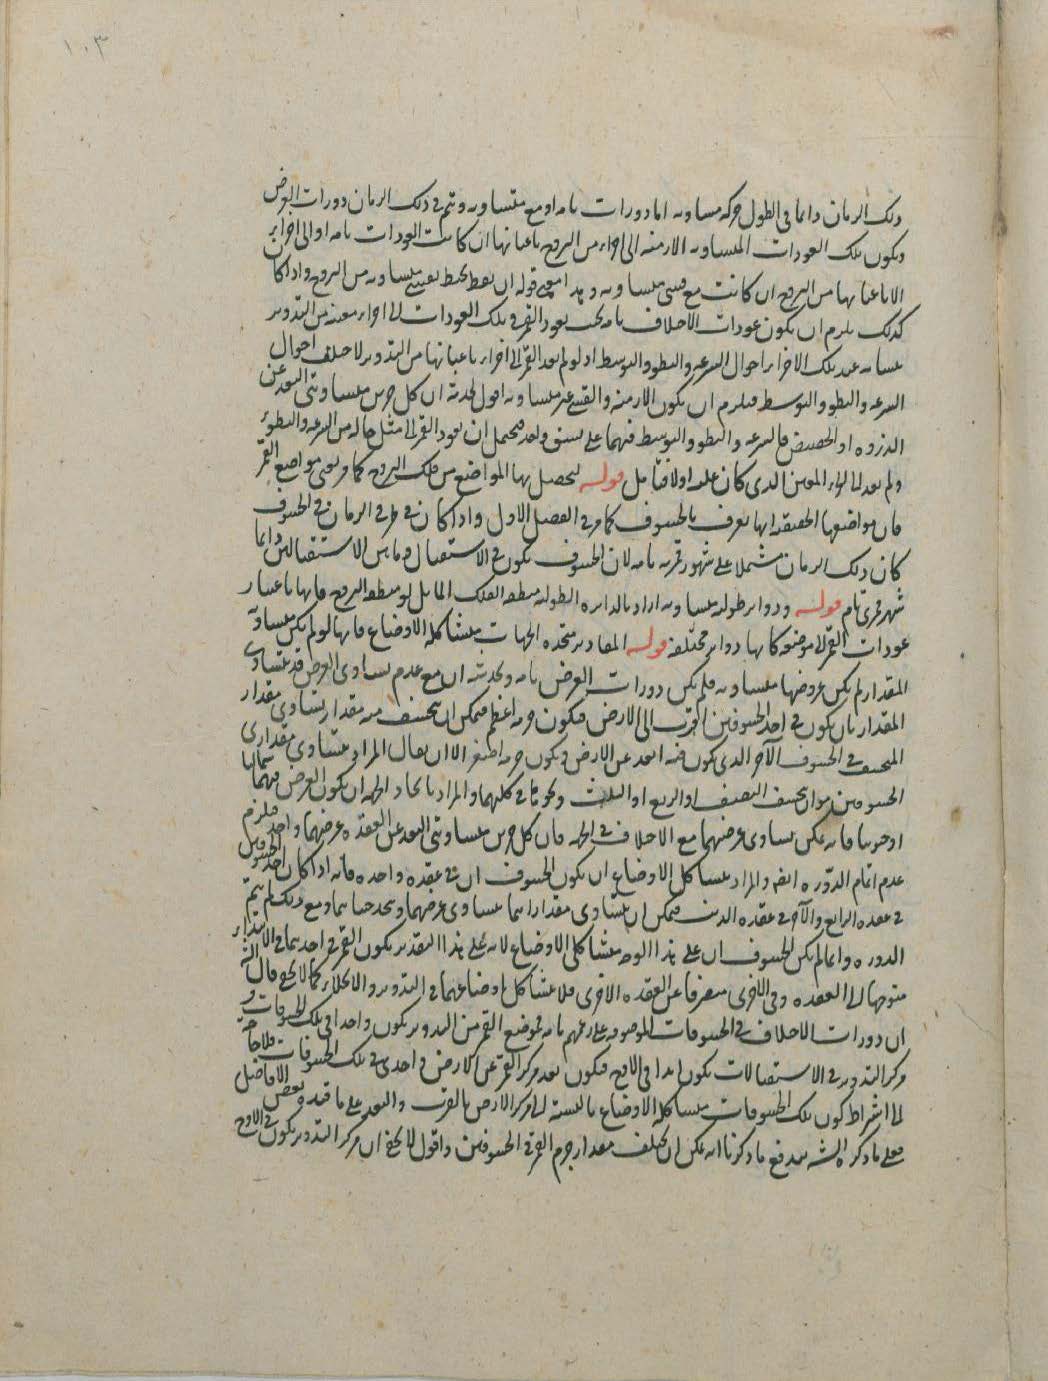 ١٠٣
ذلك الزمان دائما في الطول حركة متساوية اما دورات تامة او مع متساوية وتتم في ذلك الزمان دورات العرض
ويكون تلك العودات المتساوية الازمنة الى اجزاء من البروج باعيانها ان كانت العودات تامة او الى اجزاء
لا باعيانها من البروج ان كانت مع قسي متساوية وهذا معنى قوله ان نقط تحيط بقسي متساوية من البروج واذا كان
كذلك يلزم ان يكون عودات الاختلاف تامة بحيث يعود القمر في تلك العودات الى اجزاء معينة من التدوير
عند تلك الاجزاء احوال السرعة والبطؤ والتوسط اذ لو لم يعد القمر الى اجزاء باعيانها من التدوير لاختلف احوال
السرعة والبطؤ والتوسط فيلزم ان يكون الازمنة والقسي غير متساوية اقول لخدشه ان كل جزئين متساويتي البعد عن
الذروة او الحضيض فالسرعة والبطؤ والتوسط فيهما على نسق واحد فيحتمل ان يعود القمر الى مثل حاله من السرعة والبطؤ
ولم يعد الى الجزء المعين الذي كان عليه اولا فتأمل قوله ليحصل بها المواضع من فلك البروج كما مر يعني مواضع القمر
فان مواضعها الحقيقة انها يعرف بالخسوف كما مر في الفصل الاول واذا كان في طرفي الزمان في الخسوف
كان ذلك الزمان مشتملا على شهور قمرية تامة لان الخسوف يكون في الاستقبال وما بين الاستقبالين دائما
شهر قمري تام قوله ودوائر طولية متساوية اراد بالدائرة الطولية منطقة الفلك المائل او منطقة البروج فانها باعتبار
عودات القمر الى موضعه كانها دوائر مختلفة قوله المقادير متحدة الجهات متشاكلة الاوضاع فانها لو لم يكن متساوية
المقدار لم يكن عروضها متساوية فلم يكن دورات العرض تامة وخدشه ان مع عدم تساوي العرض قد يتساوى
المقدار بان يكون في احد الخسوفين اقرب الى الارض فيكون جرمه اعظم فيمكن ان ينخسف منه مقدار يتساوى مقدار
المنخسف في الخسوف الآخر الذي يكون فيه ابعد عن الارض ويكون جرمه اصغر الا ان يقال المراد بتساوي مقداري
الخسوفين هو ان ينخسف النصف او الربع او الثلث ونحوها في كليهما والمراد باتحاد الجهة ان يكون العرض فيهما شماليا
او جنوبيا فانه يمكن تساوي عرضيهما مع الاختلاف في الجهة فان كل جزئين متساويتي البعد عن العقدة عرضهما واحد فيلزم
عدم اتمام الدورة ايضا والمراد بتشاكل الاوضاع ان يكون الخسوفان في عقدة واحدة فانه اذا كان احد الخسوفين
في عقدة الرأس والآخر في عقدة الذنب فيمكن ان يتساوى مقداراهما بتساوي عرضيهما ويتحد جهتاهما ومع ذلك لم يتم
الدورة وانما لم يكن الخسوفان على هذا الوجه متشاكلي الاوضاع لانه على هذا التقدير يكون القمر في احديهما في الابتداء
متوجها الى العقدة وفي الاخرى منصرفا عن العقدة الاخرى فلا يتشاكل اوضاعهما في التدوير والانجلاء كما لا يخفى قال الشـ
ان دورات الاختلاف في الخسوفات الموصوفة على رأيهم تامة فموضع القمر من التدوير يكون واحدا في تلك الخسوفات و
مركز التدوير في الاستقبالات يكون ابدا في الاوج فيكون بعد مركز القمر عن الارض واحدا في تلك الخسوفات فلا حاجة
الى اشتراط كون تلك الخسوفات متشاكلة الاوضاع بالنسبة الى مركز الارض بالقرب والبعد على ما قيده بعض الافاضل
فعلى ما ذكره الشـ يندفع ما ذكرنا انه يمكن ان يختلف مقدار جرم القمر في الخسوفين واقول لا يخفى ان مركز التدوير يكون في الاوج